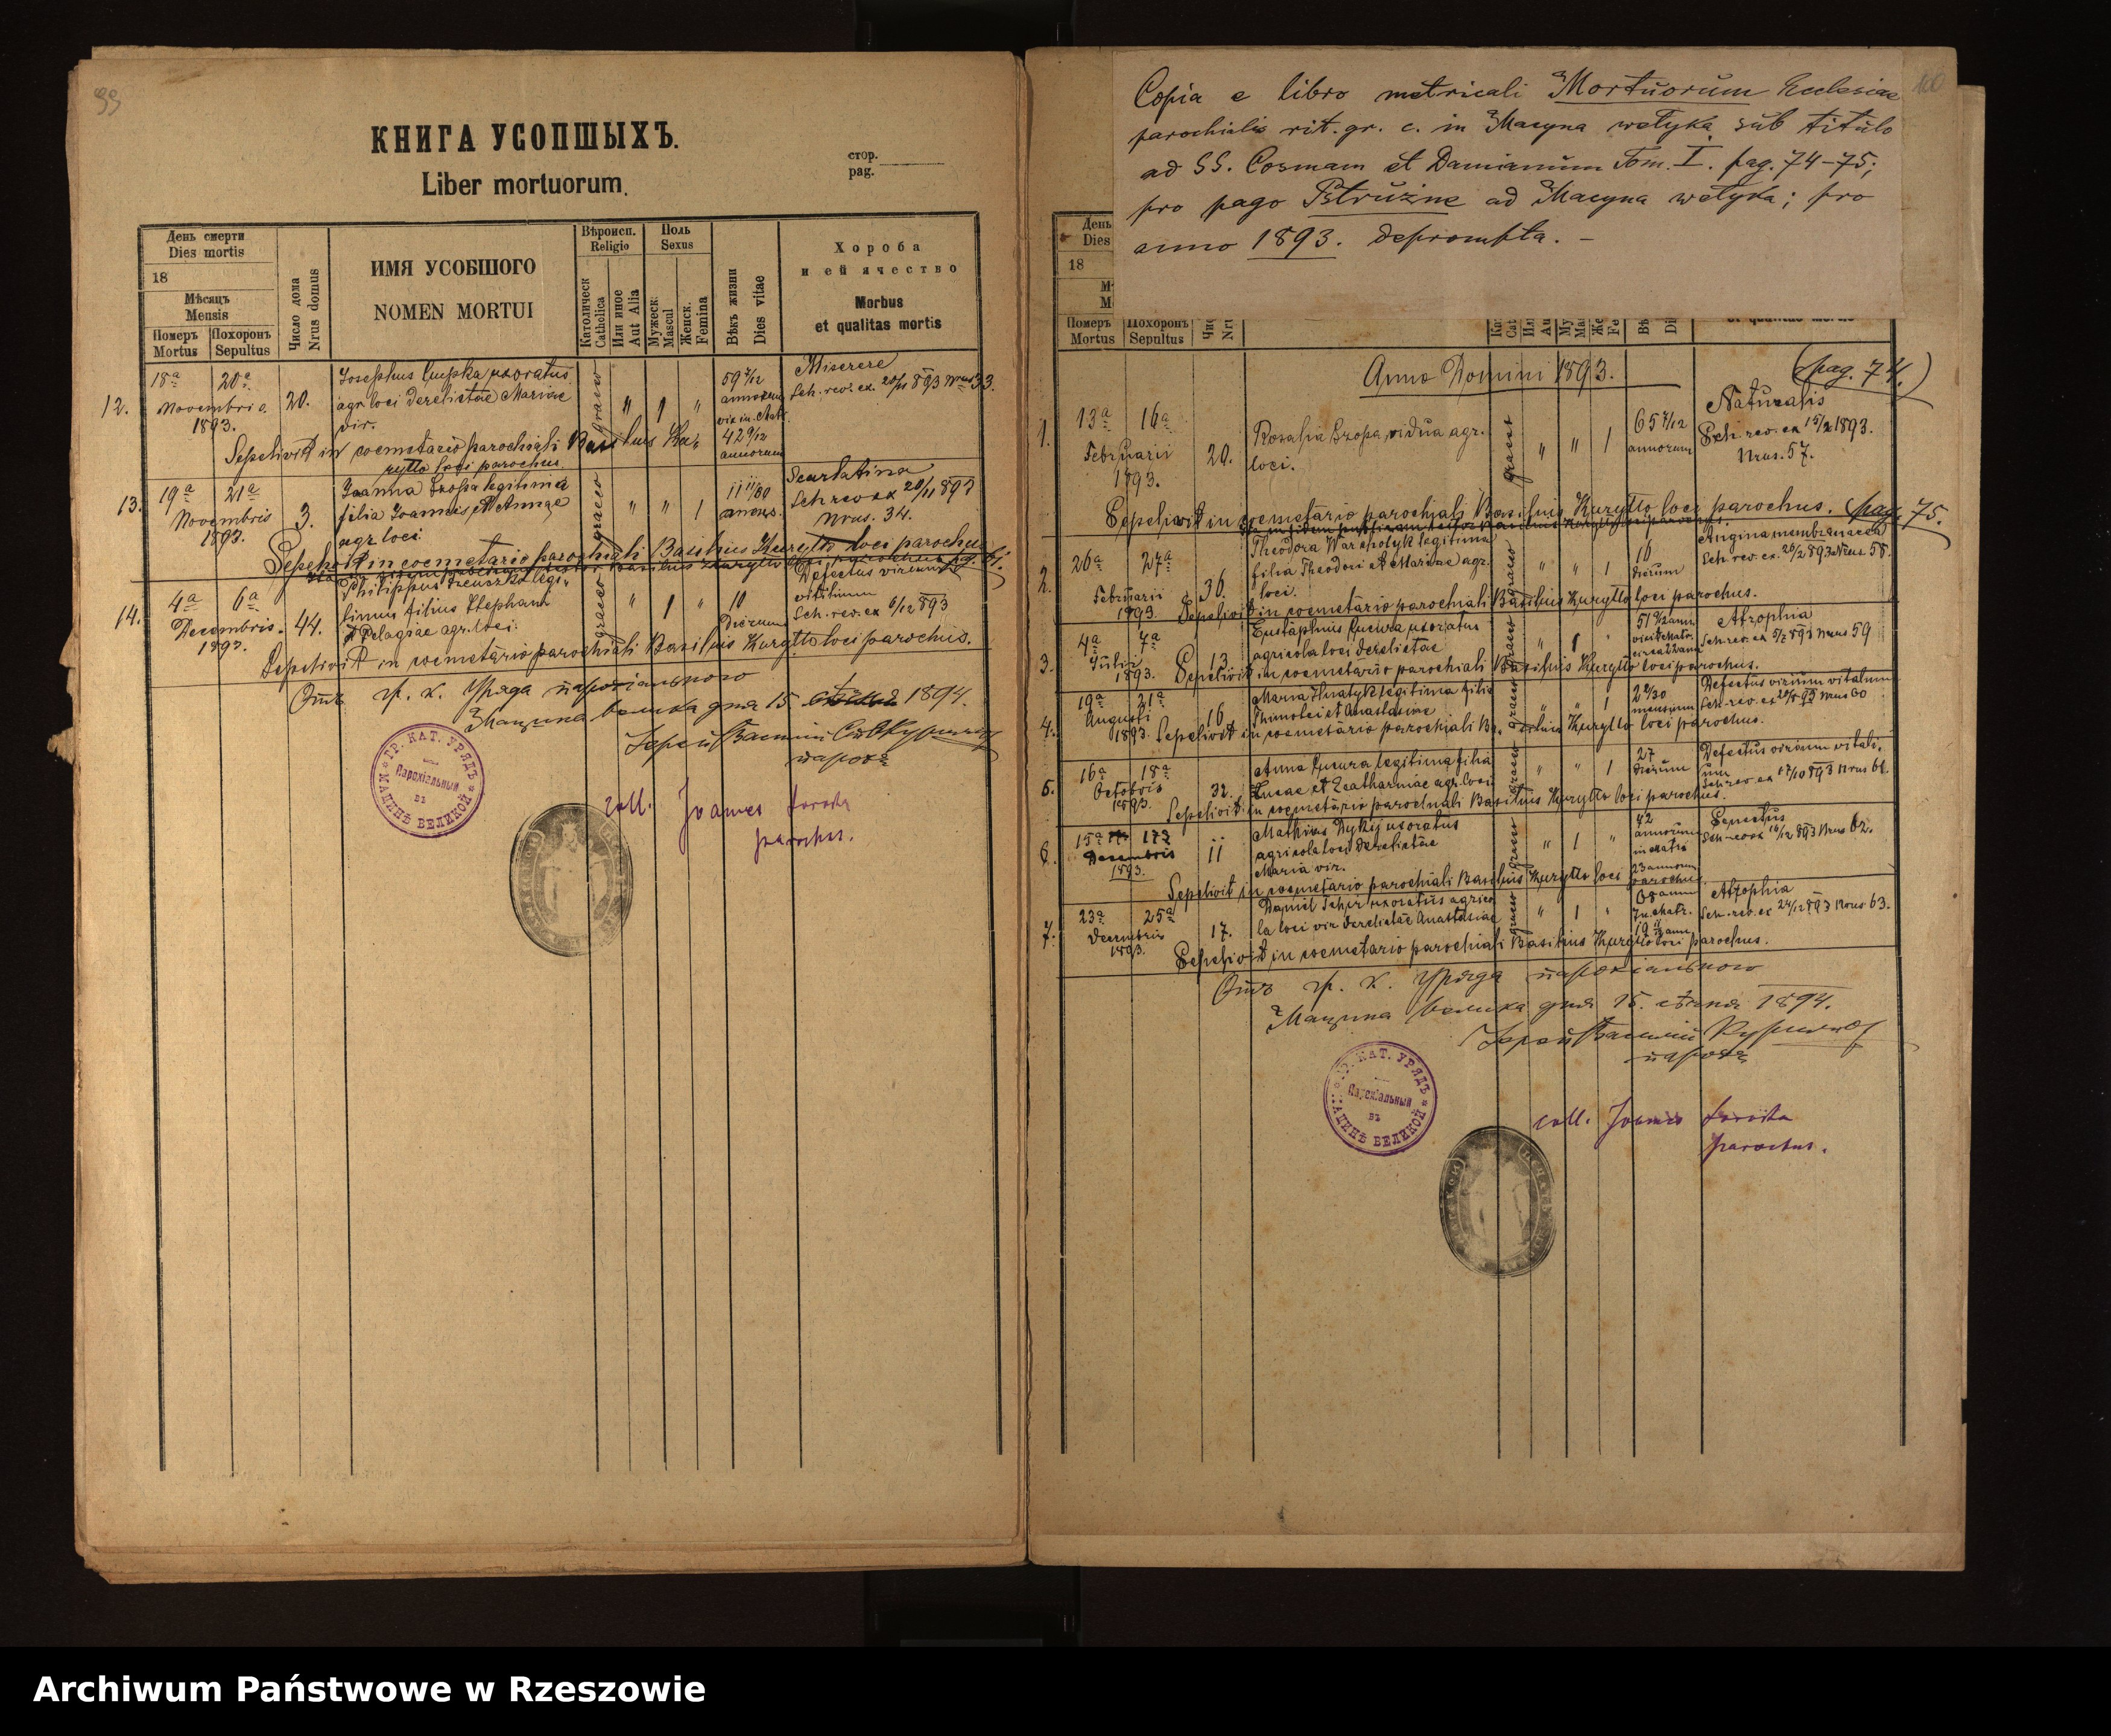 99
КНИГА УСОПШЫХЪ.
Liber mortuorum.
стор.
pag.
День смерти
Dies mortis
18
Мѣсяцъ
Mensis
Померъ
Mortus
Похоронъ
Sepultus
Число дома
Nrus domus
ИМЯ УСОБШОГО
NOMEN MORTUI
Вѣроисп.
Religio
Католическ
Catholica
Или иное
Aut Alia
Полъ
Sexus
Мужеск:
Mascul
Женск.
Femina
Вѣкъ жизни
Dies vitae
Хороба
и ей ячество
Morbus
et qualitas mortis
12.
18a 20a
Novembris
1893.
20.
Josephus uxoratus
agr. loci derelictae Mariae
vir.
graeco
" 1 "
59 7/12
annorum
vix. in. Matr.
42 9/12
annorum
Miserere
Sch. rev. ex. 20/11 893 Nrus 33.
Sepelivit in coemetario parochiali Basilius Ku-
ryłło loci parochus.
13.
19a 21a
Novembris
1893.
3.
Joanna legitima
filia Joannis et Annae
agr. loci
graeco
" " 1
11 11/30
Scarlatina
Sch rev ex 20/11 893
Nrus. 34.
Sepelivit in coemetario parochiali Basilius Kuryłło loci parochus
14.
4a 6a
Decembris.
1893.
44.
Philippus legi-
timus filius Stephani
et Pelagiae agr. loci.
graeco
" 1 "
10
dierum
Defectus virium
vitalium
Sch. rev. ex 6/12 893
Sepelivit in coemetario parochiali Basilius Kuryłło loci parochus.
Отъ гр. к. Уряда парохіального
Мацина велика дня 15. 1894.
Іерей Василій
парохъ
ГР. КАТ. УРЯДЪ
Парохіальный
въ
МАЦИНѢ ВЕЛИКОЙ
coll. Joannes
parochus.
100
Copia e libro metricali Mortuorum Ecclesiae
parochialis rit. gr. c. in Macyna wełyka sub titulo
ad SS. Cosmam et Damianum Tom. I. pag. 74–75;
pro pago Pstrużne ad Macyna wełyka; pro
anno 1893. deprompta. –
День
Dies
18
Померъ
Mortus
Похоронъ
Sepultus
Anno Domini 1893.
(pag. 74.)
1.
13a 16a
Februarii
1893.
20.
Rosalia vidua agr.
loci.
graeco
" " 1
65 7/12
annorum
Naturalis
Sch. rev. ex 15/2 1893.
Nrus. 57.
Sepelivit in coemetario parochiali Basilius Kuryłło loci parochus. (pag. 75.
2.
26a 27a
Februarii
1893.
36.
Theodora legitima
filia Theodori et Mariae agr.
loci.
graeco
" " 1
16
dierum
Angina membranacea
Sch. rev. ex. 26/2 893 Nrus 58.
Sepelivit in coemetario parochiali Basilius Kuryłło loci parochus.
3.
4a 7a
Julii
1893.
13.
Eustaphius uxoratus
agricola loci derelictae
graeco
Atrophia
Sch. rev. ex 5/7 893 Nrus 59
Sepelivit in coemetario parochiali Basilius Kuryłło loci parochus.
4.
19a 21a
Augusti
1893.
16
Maria Hnatyk legitima filia
Thimotei et Anastasiae
graeco
" " 1
mensium
Defectus virium vitalium
Sch. rev. ex 20/8 93 Nrus 60
Sepelivit in coemetario parochiali Basilius Kuryłło loci parochus.
5.
16a 18a
Octobris
1893.
32.
Anna legitima filia
Lucae et Catharinae agr. loci
graeco
" " 1
27
dierum
Defectus virium vitali-
um
Sch rev ex 17/10 893 Nrus 61.
Sepelivit in coemetario parochiali Basilius Kuryłło loci parochus.
6.
15a 17a
Decembris
1893.
11
Mathias Dykyj uxoratus
agricola loci derelictae
Maria vir.
graeco
" 1 "
annorum
in Matr.
23 annorum
Senectus
Sch rev ex 16/12 893 Nrus 62.
Sepelivit in coemetario parochiali Basilius Kuryłło loci parochus
7.
23a 25a
Decembris
1893.
17.
Daniel uxoratus agrico
la loci vir derelictae Anastasiae
graeco
" 1 "
In Matr.
Atrophia
Sch. rev. ex 24/12 893 Nrus 63.
Sepelivit in coemetario parochiali Basilius Kuryłło loci parochus.
Отъ гр. к. Уряда парохіального
Мацина велика дня 15. сѣчня 1894.
Іерей Василій
парохъ
ГР. КАТ. УРЯДЪ
Парохіальный
въ
МАЦИНѢ ВЕЛИКОЙ
coll. Joannes
parochus.
Archiwum Państwowe w Rzeszowie